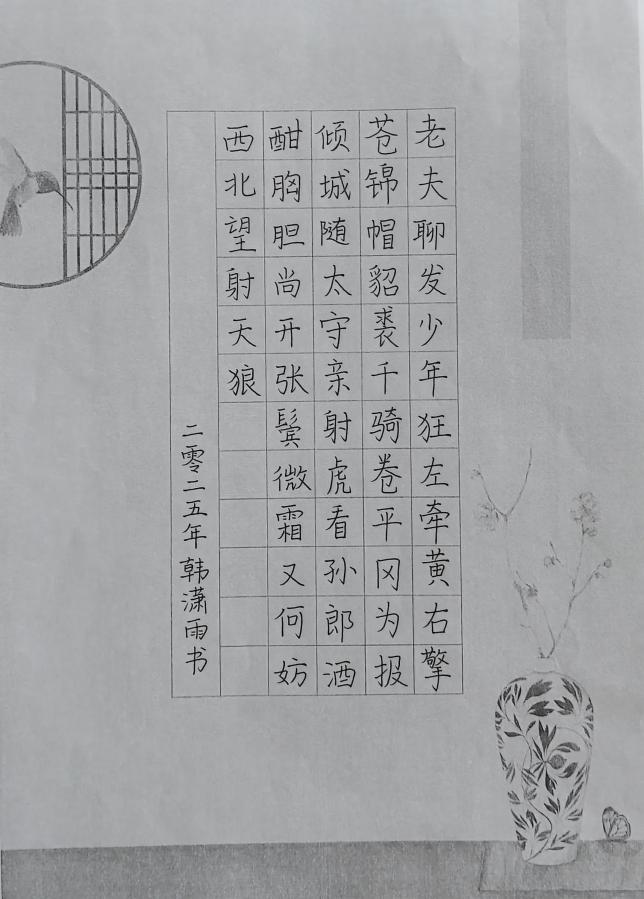 老夫聊发少年狂左牵黄右擎
苍锦帽貂裘千骑卷平冈为报
倾城随太守亲射虎看孙郎酒
酣胸胆尚开张鬓微霜又何妨
西北望射天狼
二零二五年韩潇雨书